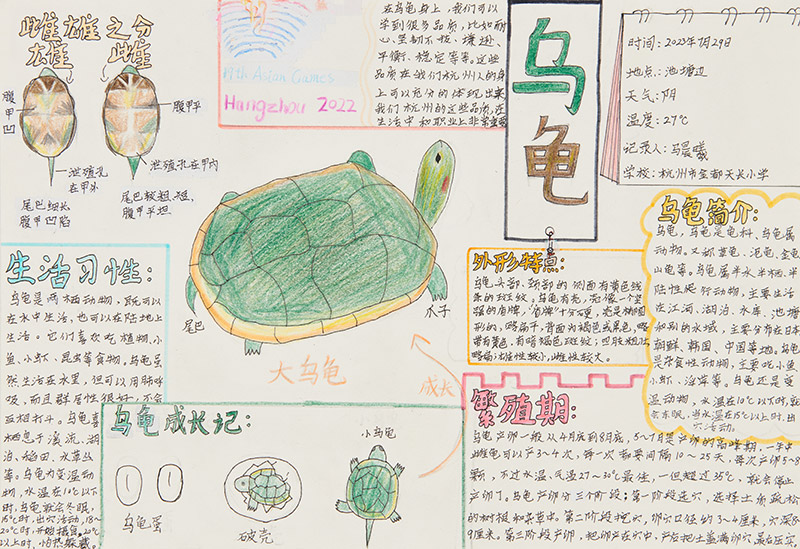 雌雄雄之分
雄 雌
腹甲凹
腹甲平
泄殖孔在甲外
泄殖孔在甲内
尾巴细长
腹甲凹陷
尾巴较粗、短、
腹甲平坦
19th Asian Games
Hangzhou 2022
在乌龟身上，我们可以
学到很多品质，比如耐
心、坚韧不拔、谦逊、
平衡、稳定等等。这些
品质在我们杭州人的身
上可以充分的体现出来
我们杭州的这些品质，在
生活中和职业上非常重要
乌龟
时间：2023年7月29日
地点：池塘边
天气：阴
温度：27℃
记录人：马晨曦
学校：杭州市金都天长小学
尾巴
爪子
大乌龟
成长
生活习性：
乌龟是两栖动物，既可以
在水中生活，也可以在陆地上
生活。它们喜欢吃植物、小
鱼、小虾、昆虫等食物，乌龟虽
然生活在水里，但可以用肺呼
吸，而且群居性很好，不会
互相打斗。乌龟喜
栖息于溪流、湖
泊、稻田、水草丛
等。乌龟为变温动
物，水温在10℃以下
时，乌龟就会冬眠，
15℃时，出穴活动，18~
20℃时，开始摄食，
以上时，
外形特点：
乌龟头部、颈部的侧面有黄色线
条的斑纹，乌龟有壳，壳像一个坚
硬的盾牌，“盾牌”十分硬，壳是椭圆
形的，略扁平，背面为褐色或黑色，略
带有黄色，有暗褐色斑纹；四肢粗壮
略扁；雄性较小，雌性较大。
乌龟简介：
乌龟，乌龟是龟科、乌龟属
动物。又称草龟、泥龟、金龟
山龟等。乌龟属半水半栖、半
陆性爬行动物，主要生活
在江河、湖泊、水库、池塘
和别的水域，主要分布在日本
朝鲜、韩国、中国等地。乌龟
是杂食性动物，主要吃小鱼
小虾、海藻等。乌龟还是变
温动物，水温在10℃以下时，就
会冬眠，当水温在15℃以上时，出
穴活动。
乌龟成长记：
乌龟蛋
破壳
小乌龟
繁殖期：
乌龟产卵一般从4月底到8月底，5~7月是产卵的高峰期，一年中
雌龟可以产3~4次，每一次都要间隔10~25天，每次产卵5~8
颗，不过水温、气温27~30℃最佳，一但超过35℃，就会停止
产卵了。乌龟产卵分三个阶段；第一阶段选穴，选择土质疏松
的树根和杂草中。第二阶段挖穴，卵穴口径约3~4厘米，穴深8~
9厘米。第三阶段产卵，把卵产在穴中，产后把土盖满卵穴最后压实